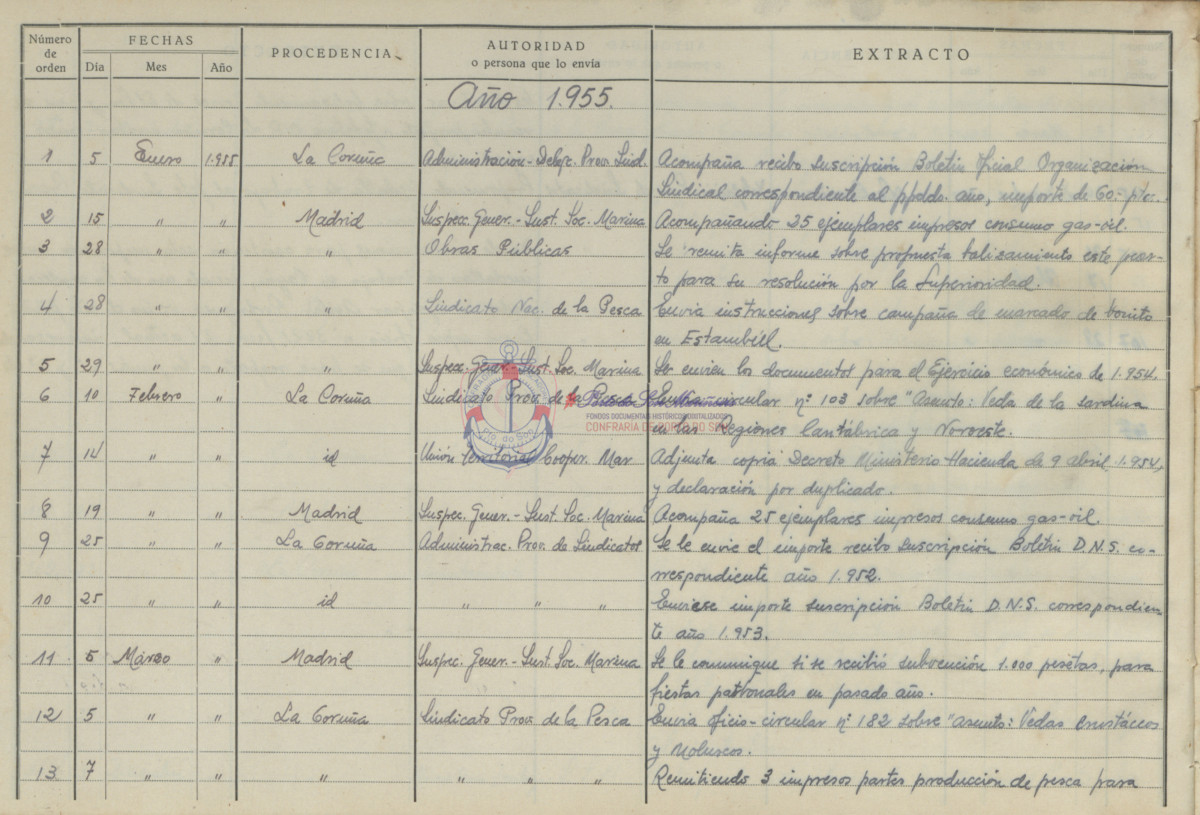 Número de orden FECHAS Día Mes Año PROCEDENCIA AUTORIDAD o persona que lo envía EXTRACTO
Año 1.955.
1 5 Enero 1.955 La Coruña Administración-Delegc. Prov. Sind. Acompaña recibo suscripción Boletín Oficial Organización
Sindical correspondiente al ppdo. año, importe de 60.- pts.
2 15 " " Madrid Inspec. Gener.- Inst. Soc. Marina Acompañando 25 ejemplares impresos consumo gas-oil.
3 28 " " " Obras Públicas Se remita informe sobre propuesta balizamiento este puer-
to para su resolución por la Superioridad.
4 28 " " " Sindicato Nac. de la Pesca Envia instrucciones sobre campaña de marcado de bonito
en Estambúll.
5 29 " " " Inspec. Gener.- Inst. Soc. Marina Se envien los documentos para el Ejercicio económico de 1.954.
6 10 Febrero " La Coruña Sindicato Prov. de la Pesca circular nº 103 sobre "Asunto: Veda de la sardina
en las Regiones Cantábrica y Noroeste.
7 14 " " id Unión Territorial Cooper. Mar Adjunta copia Decreto Ministerio Hacienda de 9 abril 1.954,
y declaración por duplicado.
8 19 " " Madrid Inspec. Gener.- Inst. Soc. Marina Acompaña 25 ejemplares impresos consumo gas-oil.
9 25 " " La Coruña Administrac. Prov. de Sindicatos Se le envie el importe recibo suscripción Boletín D.N.S. co-
rrespondiente año 1.952.
10 25 " " id " " " Enviese importe suscripción Boletín D.N.S. correspondien
te año 1.953.
11 5 Marzo " Madrid Inspec. Gener.- Inst. Soc. Marina Se le comunique si se recibió subvención 1.000 pesetas, para
fiestas patronales en pasado año.
12 5 " " La Coruña Sindicato Prov. de la Pesca Envia oficio-circular nº 182 sobre "Asunto: Vedas crustáceos
y Moluscos.
13 7 " " " " " " Remitiendo 3 impresos partes producción de pesca para
FONDOS DOCUMENTAIS HISTÓRICOS DIXITALIZADOS
CONFRARÍA DE PORTO DO SON